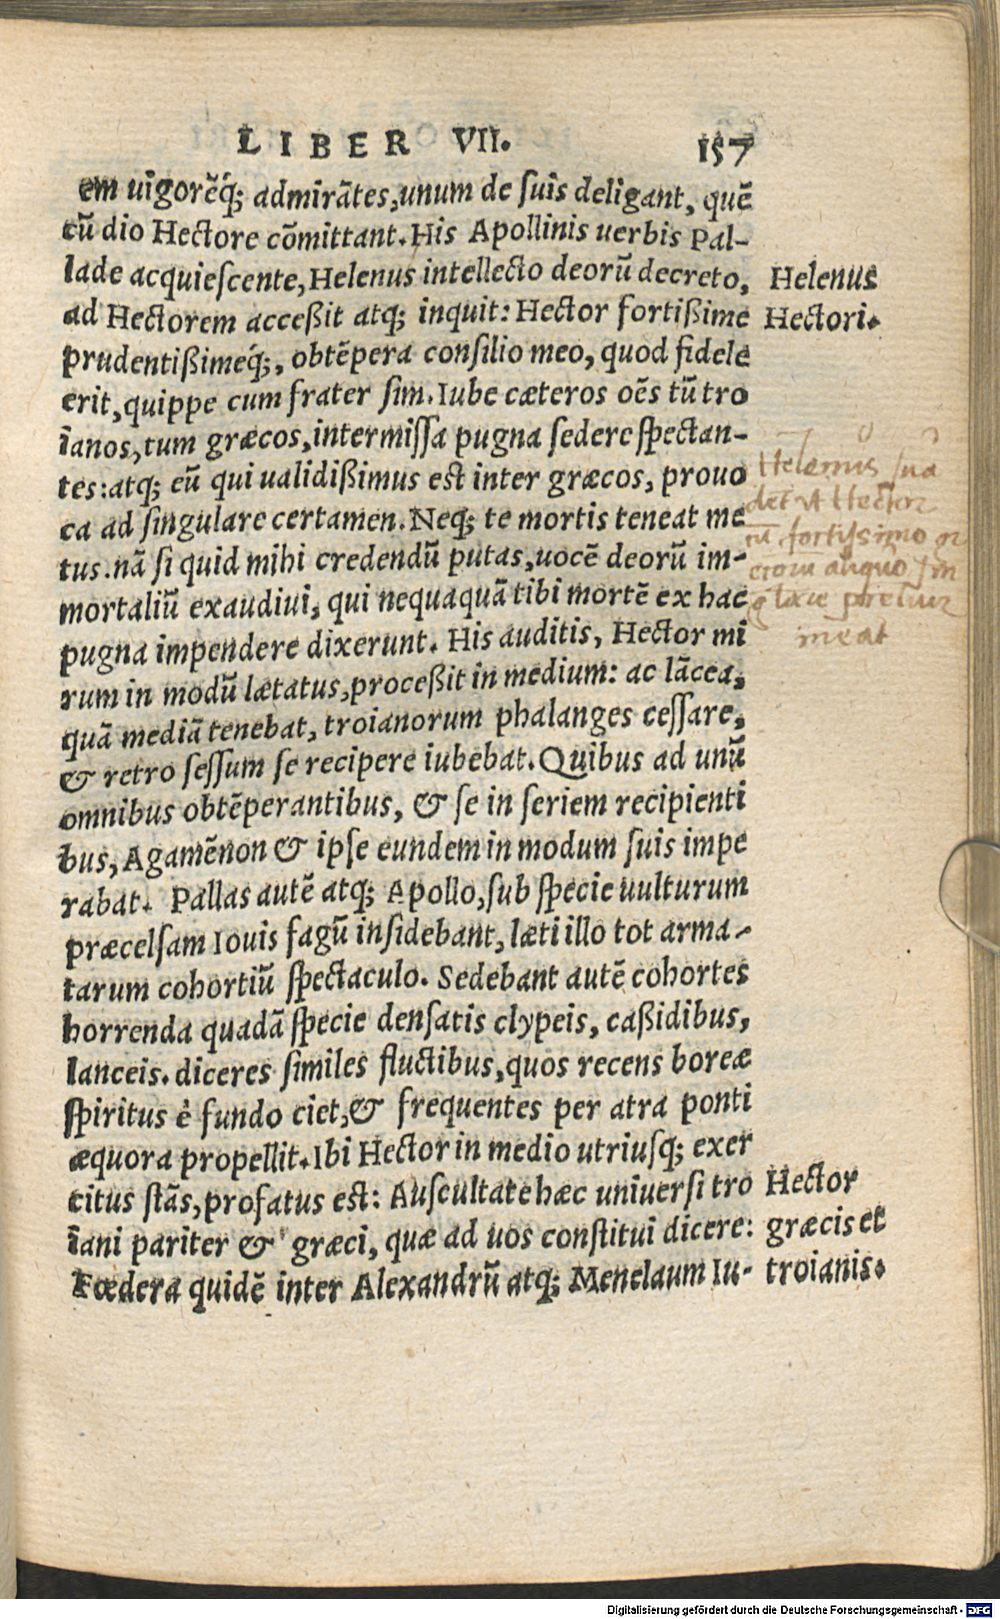 LIBER VII. 157
em uigorẽq́; admirãtes, unum de suis deligant, quẽ
cũ dio Hectore cõmittant. His Apollinis uerbis Pal-
lade acquiescente, Helenus intellecto deorũ decreto,
Helenus
ad Hectorem acceßit atq; inquit: Hector fortißime
Hectori.
prudentißimeq́;, obtẽpera consilio meo, quod fidele
erit, quippe cum frater sim. Iube cæteros oẽs tũ tro
ianos, tum græcos, intermissa pugna sedere spectan-
tes: atq; eũ qui ualidißimus est inter græcos, prouo
ca ad singulare certamen. Neq; te mortis teneat me
tus. nã si quid mihi credendũ putas, uocẽ deorũ im-
mortaliũ exaudiui, qui nequaquã tibi mortẽ ex hac
pugna impendere dixerunt. His auditis, Hector mi
rum in modũ lætatus, proceßit in medium: ac lãcea,
quã mediã tenebat, troianorum phalanges cessare,
& retro sessum se recipere iubebat. Quibus ad unũ
omnibus obtẽperantibus, & se in seriem recipienti
bus, Agamẽnon & ipse eundem in modum suis impe
rabat. Pallas autẽ atq; Apollo, sub specie uulturum
præcelsam Iouis fagũ insidebant, læti illo tot arma-
tarum cohortiũ spectaculo. Sedebant autẽ cohortes
horrenda quadã specie densatis clypeis, caßidibus,
lanceis. diceres similes fluctibus, quos recens boreæ
spiritus è fundo ciet, & frequentes per atra ponti
æquora propellit. Ibi Hector in medio utriusq; exer
citus stãs, profatus est: Auscultate hæc uniuersi tro
Hector
iani pariter & græci, quæ ad uos constitui dicere:
græcis et
Fœdera quidẽ inter Alexandrũ atq; Menelaum Iu-
troianis.
Helenus sua
det vt Hector
cũ fortissimo
aliquo
ineat
Digitalisierung gefördert durch die Deutsche Forschungsgemeinschaft - DFG